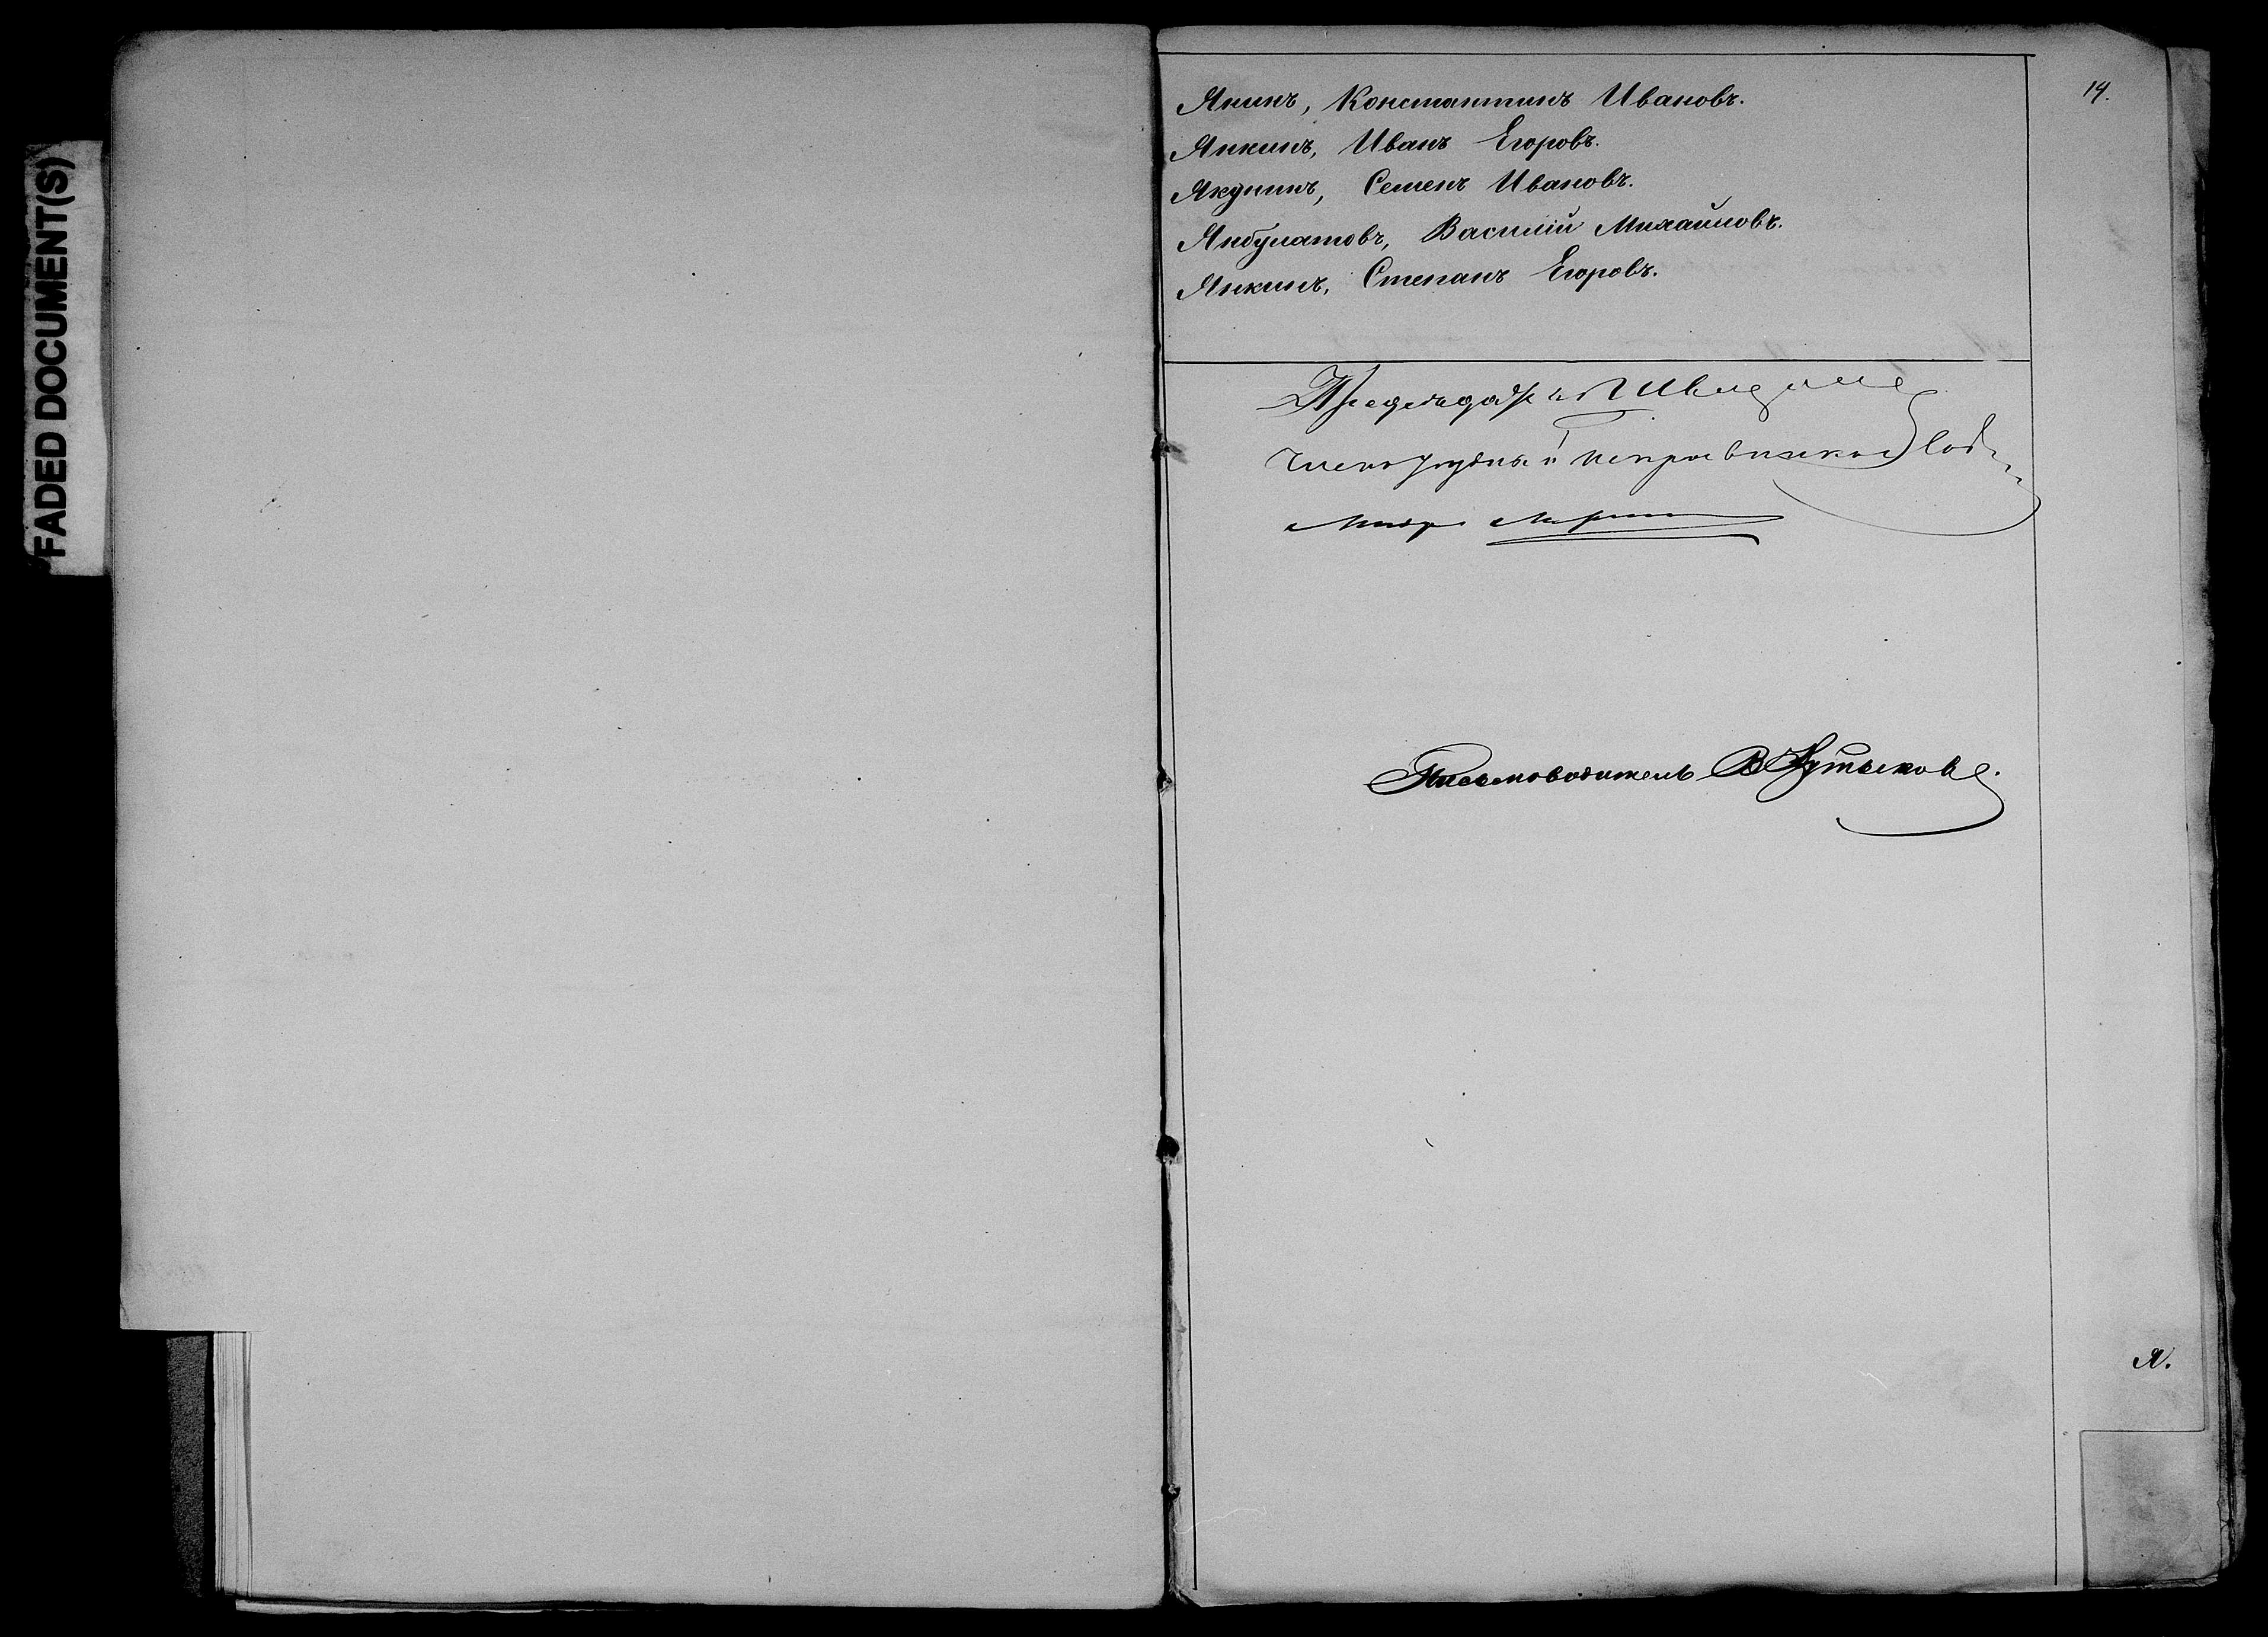 FADED DOCUMENT(S)
14.
Янинъ, Константинъ Ивановъ.
Янкинъ, Иванъ Егоровъ.
Якунинъ, Семенъ Ивановъ.
Янбулатовъ, Василій Михайловъ.
Янкинъ, Степанъ Егоровъ.
Предсѣдатель
Уѣздный исправникъ
Письмоводитель В Кутыковъ.
Я.